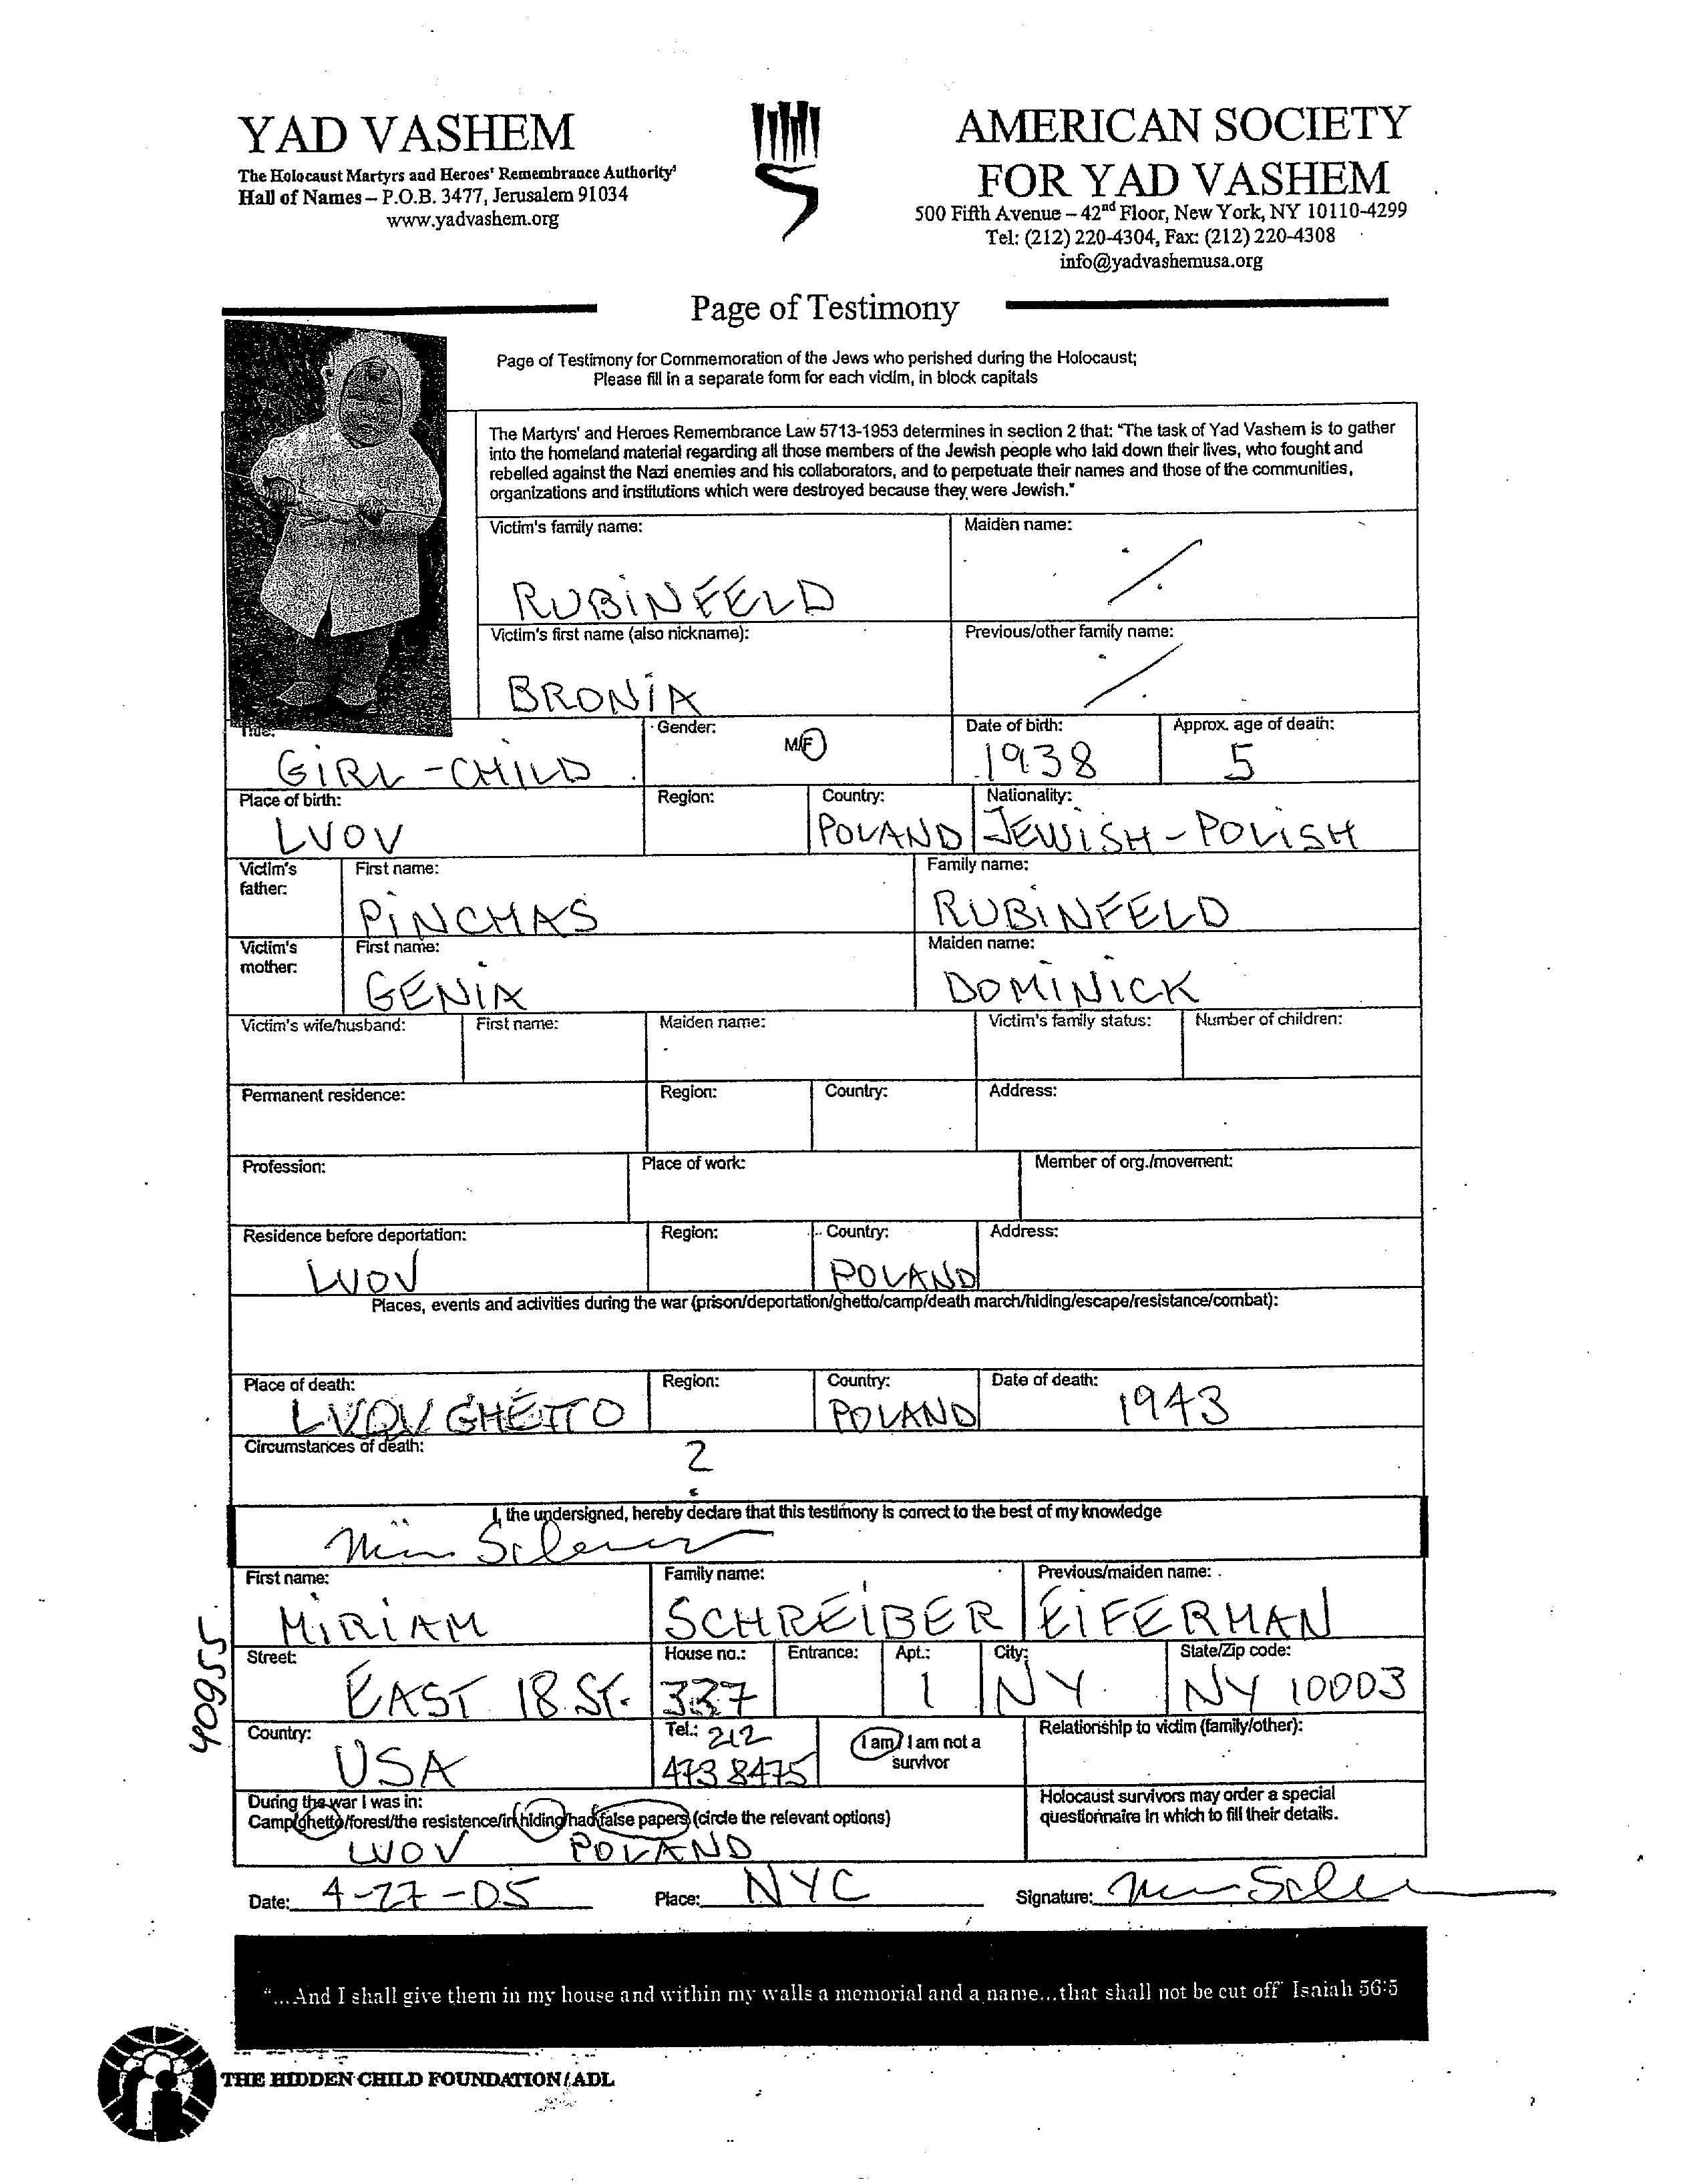 YAD VASHEM
The Holocaust Martyrs and Heroes' Remembrance Authority'
Hall of Names – P.O.B. 3477, Jerusalem 91034
www.yadvashem.org
AMERICAN SOCIETY
FOR YAD VASHEM
500 Fifth Avenue – 42nd Floor, New York, NY 10110-4299
Tel: (212) 220-4304, Fax: (212) 220-4308
info@yadvashemusa.org
Page of Testimony
Page of Testimony for Commemoration of the Jews who perished during the Holocaust;
Please fill in a separate form for each victim, in block capitals
The Martyrs' and Heroes Remembrance Law 5713-1953 determines in section 2 that: "The task of Yad Vashem is to gather
into the homeland material regarding all those members of the Jewish people who laid down their lives, who fought and
rebelled against the Nazi enemies and his collaborators, and to perpetuate their names and those of the communities,
organizations and institutions which were destroyed because they were Jewish."
Victim's family name: Maiden name:
RUBINFELD
Victim's first name (also nickname): Previous/other family name:
BRONIA
Title: Gender: M/F Date of birth: Approx. age of death:
GIRL-CHILD 1938 5
Place of birth: Region: Country: Nationality:
LVOV POLAND JEWISH-POLISH
Victim's father: First name: Family name:
PINCHAS RUBINFELD
Victim's mother: First name: Maiden name:
GENIA DOMINICK
Victim's wife/husband: First name: Maiden name: Victim's family status: Number of children:
Permanent residence: Region: Country: Address:
Profession: Place of work: Member of org./movement:
Residence before deportation: Region: Country: Address:
LVOV POLAND
Places, events and activities during the war (prison/deportation/ghetto/camp/death march/hiding/escape/resistance/combat):
Place of death: Region: Country: Date of death:
LVOV GHETTO POLAND 1943
Circumstances of death: ?
I, the undersigned, hereby declare that this testimony is correct to the best of my knowledge
First name: Family name: Previous/maiden name:
MIRIAM SCHREIBER EIFERMAN
Street: House no.: Entrance: Apt.: City: State/Zip code:
EAST 18 ST. 337 1 NY NY 10003
Country: Tel.: 212 I am/I am not a survivor Relationship to victim (family/other):
USA 473 8475
During the war I was in:
Camp/ghetto/forest/the resistence/in hiding/had false papers (circle the relevant options)
LVOV POLAND
Holocaust survivors may order a special
questionnaire in which to fill their details.
Date: 4-27-05 Place: NYC Signature:
40955
"...And I shall give them in my house and within my walls a memorial and a name...that shall not be cut off" Isaiah 56:5
THE HIDDEN CHILD FOUNDATION/ADL